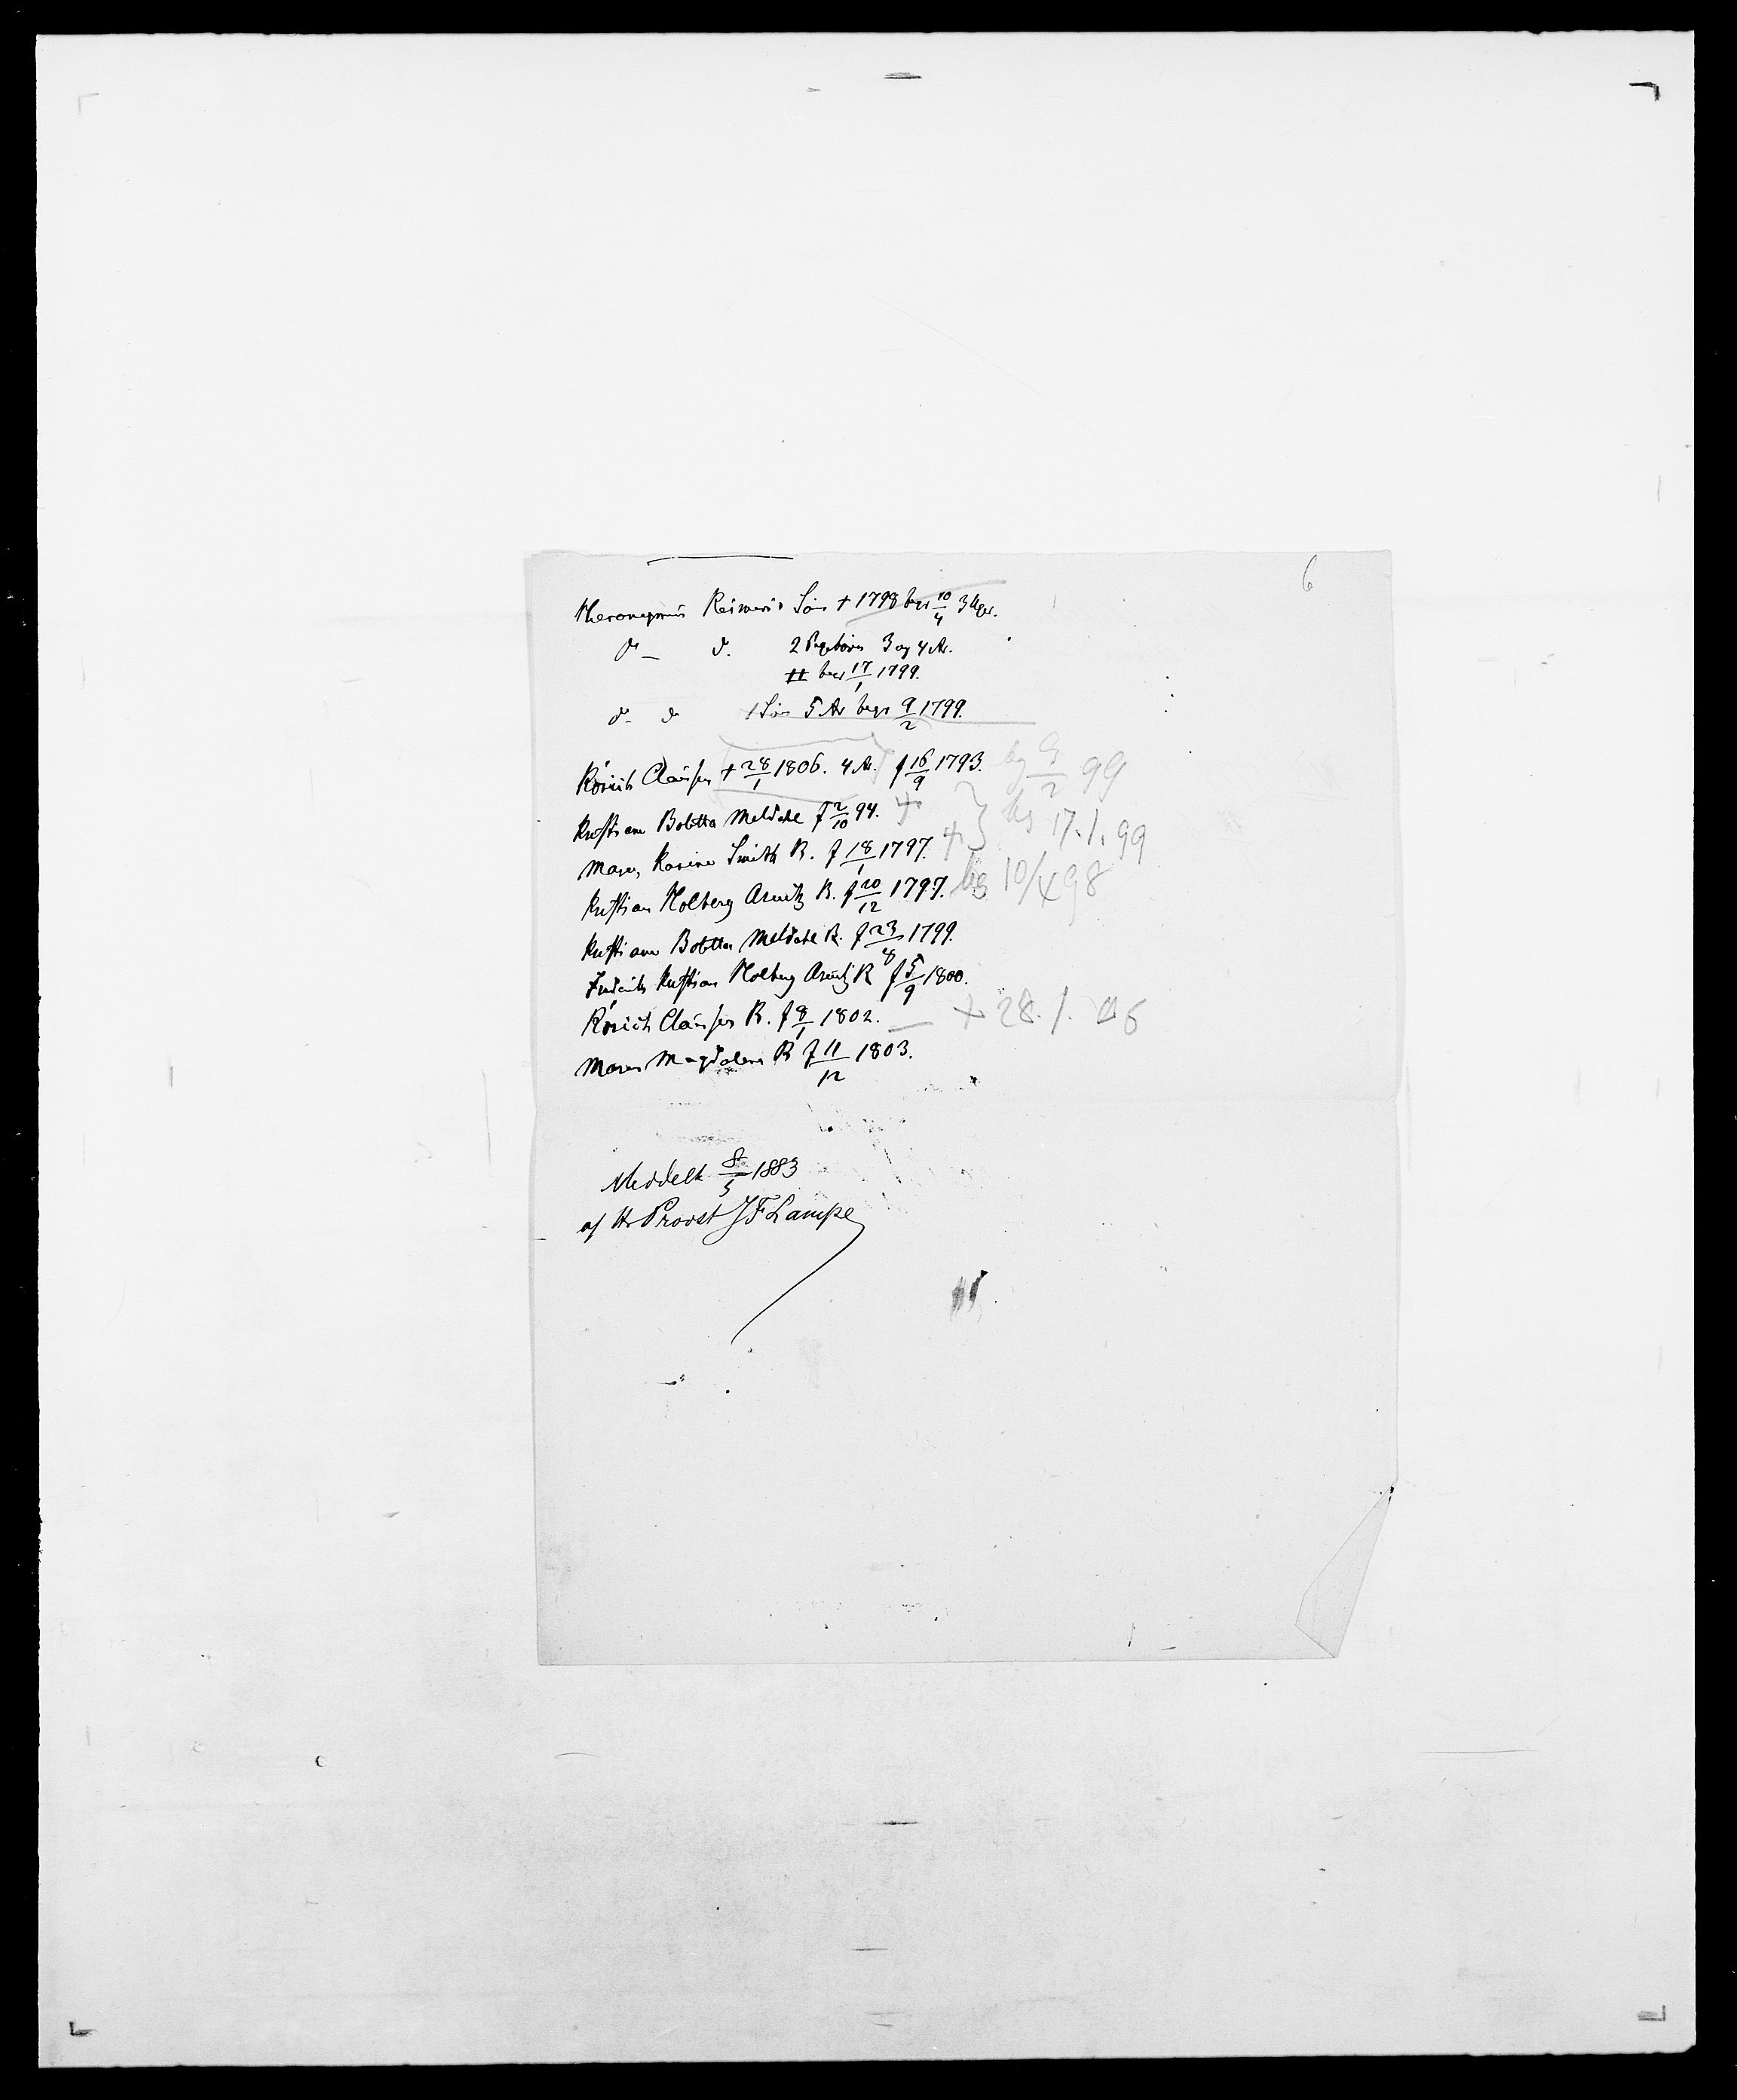 6
Hieronymus Reimers Søn † 1798 begr 10/4 3 Uger.
do — do. 2 Pigebørn 3 og 4 Ar.
begr 17/1 1799.
do do 1 Søn 5 Ar begr 9/2 1799.
Clausen † 28/1 1806. 4 Ar. f 16/9 1793. bg 9/2 99
Kristiane Bolette Meldahl f 2/10 94. +
Maren Karine Smith R. f 18/1 1797. + } bg 17.1.99
Kristian Holberg Arentz R. f 20/12 1797. bg 10/4 98
Kristiane Bolette Meldahl R. f 23/8 1799.
Fredrik Kristian Holberg Arentz R f 5/9 1800.
Clausen R. f 8/1 1802. — + 28.1. 06
Maren Magdalena R f 11/12 1803.
Meddelt 8/5 1883
af Hr Provst J F Lampe